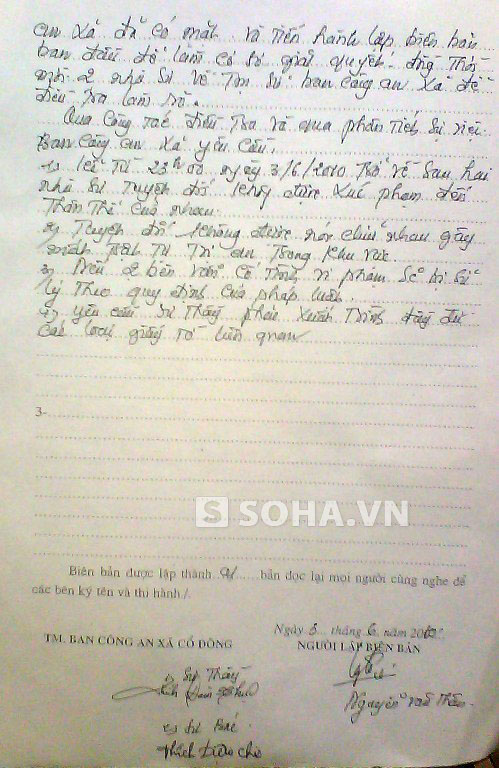 an xã đã có mặt và tiến hành lập biên bản
ban đầu để làm cơ sở giải quyết. đồng thời
mời 2 nhà sư về trụ sở ban công an xã để
điều tra làm rõ.
Qua công tác điều tra và qua phân tích sự việc
Ban công an xã yêu cầu.
1, kể từ 23h00 ngày 3/6/2010 trở về sau hai
nhà sư tuyệt đối không được xúc phạm đến
thân thể của nhau
2, Tuyệt đối không được nói chửi nhau gây
mất trật tự trị an trong khu vực.
3, Nếu 2 bên vẫn cố tình vi phạm sẽ bị xử
lý theo quy định của pháp luật.
4, yêu cầu sư thầy phải xuất trình đầy đủ
các loại giấy tờ liên quan
3-
SOHA.VN
Biên bản được lập thành bản đọc lại mọi người cùng nghe để
các bên ký tên và thi hành /.
Ngày 3 tháng 6 năm 2010
TM. BAN CÔNG AN XÃ CỔ ĐÔNG
NGƯỜI LẬP BIÊN BẢN
Sư Thầy
Nguyễn Văn
Sư Bác
Thích